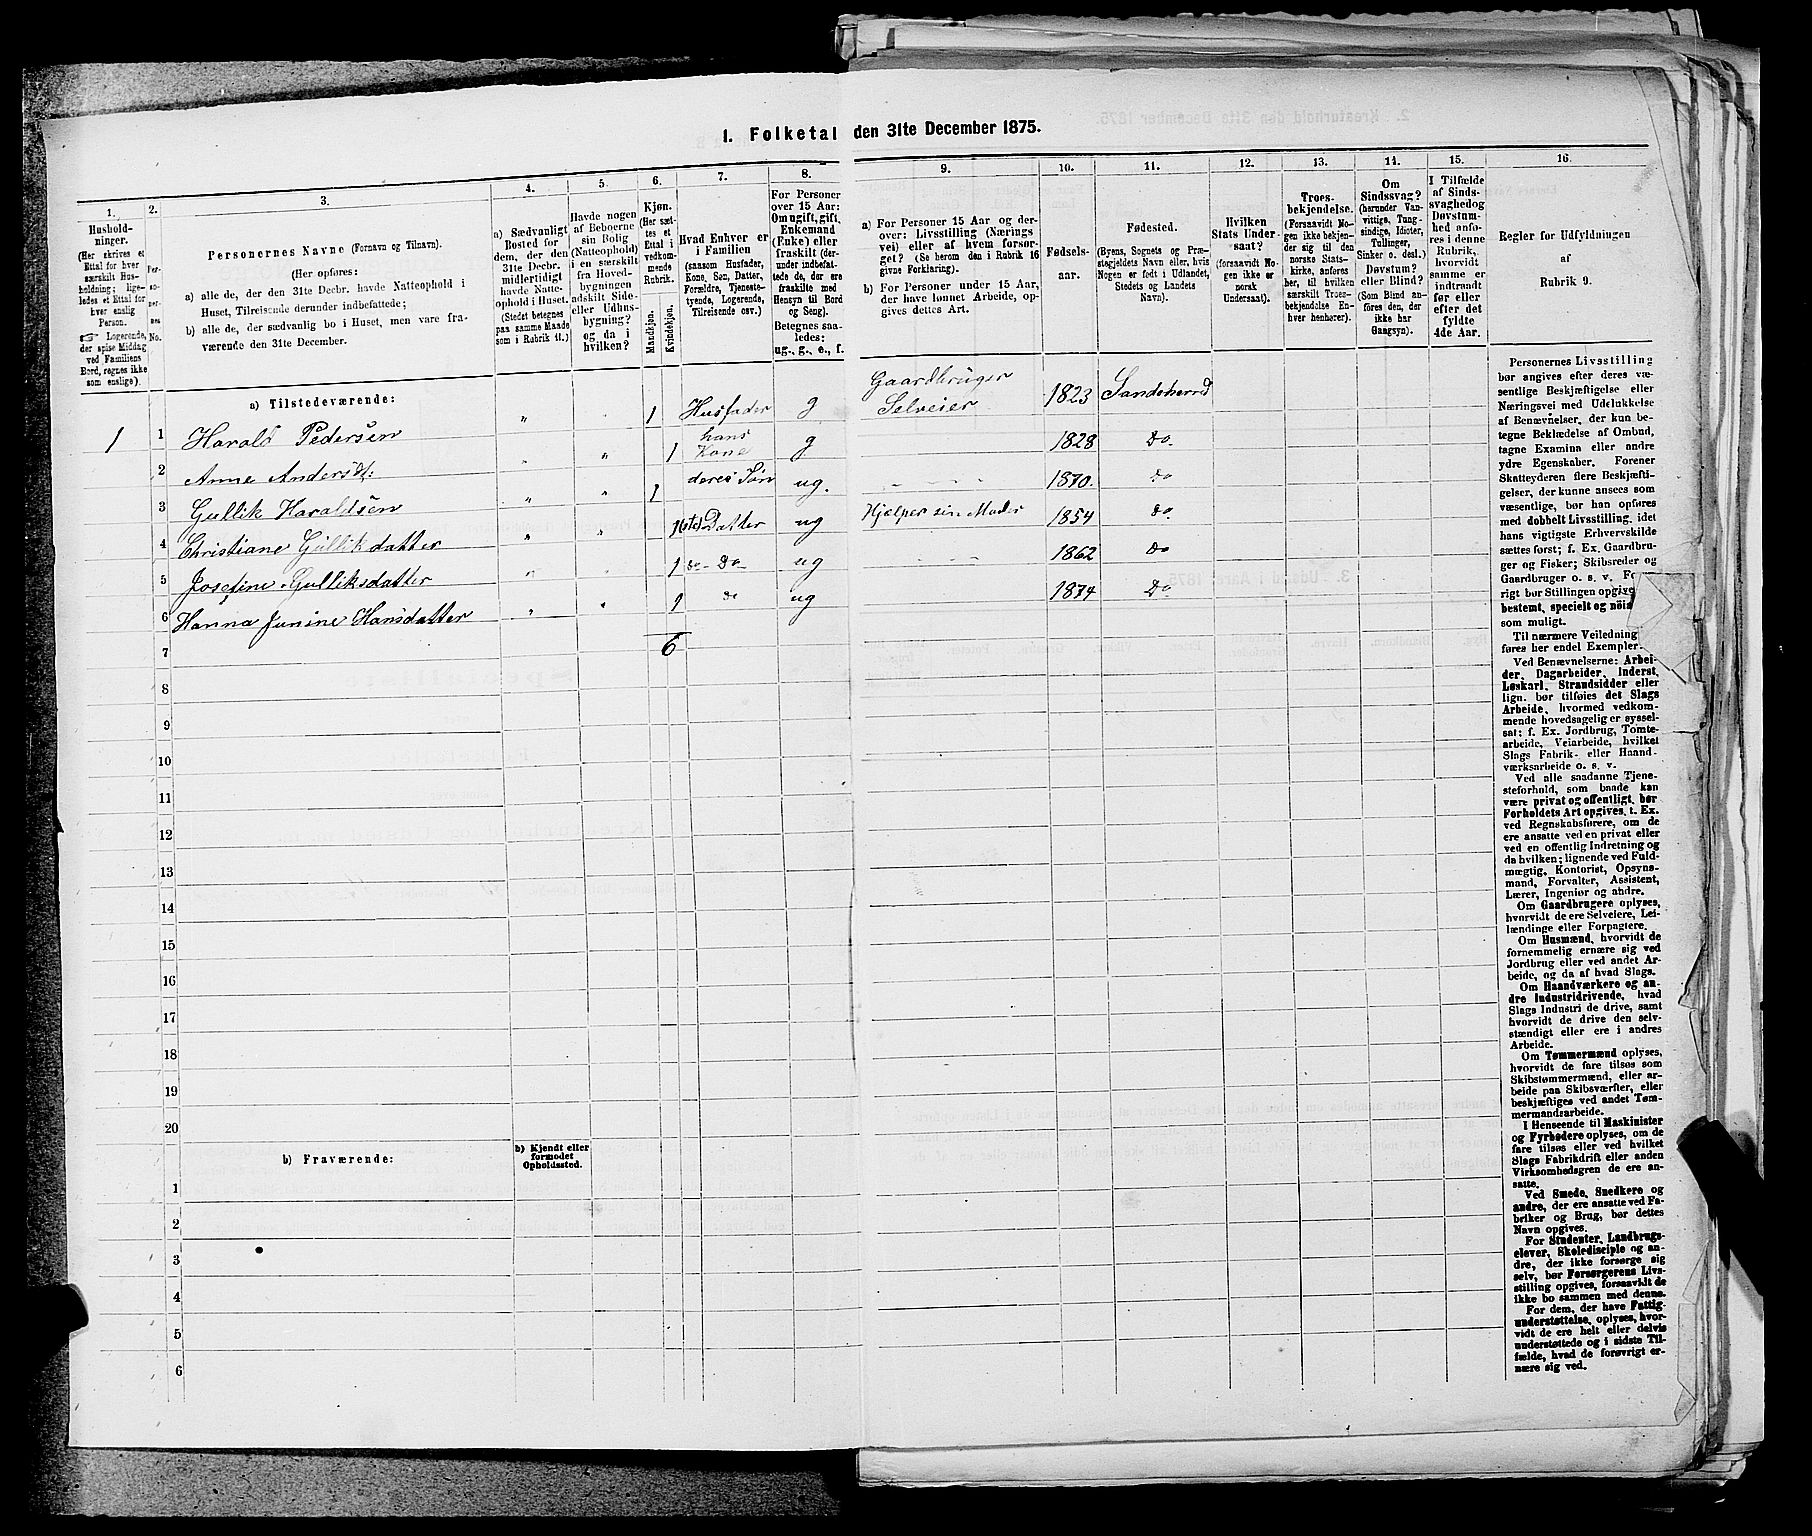 1. Folketal den 31te December 1875.
1.
Husholdninger.
(Her skrives et
Ettal for hver
særskilt Husholdning;
ligeledes et Ettal for
hver enslig
Person.
Logerende,
der spise Middag
ved Familiens
Bord, regnes ikke
som enslige).
2.
Personernes No.
3.
Personernes Navne (Fornavn og Tilnavn).
(Her opføres:
a) alle de, der den 31te Decbr. havde Natteophold i
Huset, Tilreisende derunder indbefattede;
b) alle de, der sædvanlig bo i Huset, men vare fraværende
den 31te December.
4.
a) Sædvanligt
Bosted for
dem, der den
31te Decbr.
midlertidigt
havde Natteophold
i Huset.
(Stedet betegnes
paa samme Maade
som i Rubrik 11.)
5.
Havde nogen
af Beboerne
sin Bolig
(Natteophold)
i en særskilt
fra Hovedbygningen
adskilt Side-
eller Udhusbygning?
og da i
hvilken?
6.
Kjøn.
(Her sættes
et
Ettal i
vedkommende
Rubrik.
Mandkjøn.
Kvindekjøn.
7.
Hvad Enhver er
i Familien
(saasom Husfader,
Kone, Søn, Datter,
Forældre, Tjenestetyende,
Logerende,
Tilreisende osv.)
8.
For Personer
over 15 Aar:
Om ugift, gift,
Enkemand
(Enke) eller
fraskilt (derunder
indbefattede
de, der ere
fraskilte med
Hensyn til Bord
og Seng).
Betegnes saaledes:
ug., g., e., f.
9.
a) For Personer 15 Aar og derover:
Livsstilling (Næringsvei)
eller af hvem forsørget?
(Se herom den i Rubrik 16
givne Forklaring).
b) For Personer under 15 Aar,
der have lønnet Arbeide, opgives
dettes Art.
10.
Fødselsaar.
11.
Fødested.
(Byens, Sognets og Præstegjeldets
Navn eller, hvis
Nogen er født i Udlandet,
Stedets og Landets
Navn).
12.
Hvilken
Stats Undersaat?
(forsaavidt Nogen
ikke er
norsk
Undersaat).
13.
Troesbekjendelse.
(Forsaavidt Nogen
ikke bekjender
sig til den
norske Statskirke,
anføres
her, til hvilken
særskilt Troesbekjendelse
Enhver
henhører).
14.
Om
Sindssvag?
(herunder Vanvittige,
Tungsindige,
Idioter,
Tullinger,
Sinker o. desl.)
Døvstum?
eller Blind?
(Som Blind anføres
den, der
ikke har
Gangsyn).
15.
I Tilfælde
af Sindssvaghed
og
Døvstumhed
anføres
i denne
Rubrik,
hvorvidt
samme er
indtraadt
før eller
efter det
fyldte
4de Aar.
16.
Regler for Udfyldningen
af
Rubrik 9.
a) Tilstedeværende:
1 1 Harald Pedersen " " 1 Husfader g Gaardbruger Selveier 1823 Sandeherred
2 Anne Andersdt: " " 1 hans Kone g 1828 Do
3 Gullik Haraldsen " " 1 deres Søn ug. " " " 1870. Do
4 Christiane Gullikdatter " " 1 Datter ug Hjelper sin Moder 1854 Do
5 Josefine Gulliksdatter " " 1 Do Do ug " " 1862 Do
6 Hanna Junine Hansdatter " " 1 do ug 1874 Do
7 6
8
9
10
11
12
13
14
15
16
17
18
19
20
b) Fraværende:
b) Kjendt eller
formodet
Opholdssted.
1
2
3
4
5
6
Personernes Livsstilling
bør angives efter deres væsentlige
Beskjæftigelse eller
Næringsvei med Udelukkelse
af Benævnelser, der kun betegne
Beklædelse af Ombud,
tagne Examina eller andre
ydre Egenskaber. Forener
Skatteyderen flere Beskjæftigelser,
der kunne ansees som
væsentlige, bør han opføres
med dobbelt Livsstilling, idet
hans vigtigste Erhvervskilde
sættes først; f. Ex. Gaardbruger
og Fisker; Skibsreder og
Gaardbruger o. s. v. Forøvrigt
bør Stillingen opgives
bestemt, specielt og nöiagtigt
som muligt.
Til nærmere Veiledning
føres her endel Exempler.
Ved Benævnelserne: Arbeider,
Dagarbeider, Inderst,
Løskarl, Strandsidder eller
lign. bør tilføies det Slags
Arbeide, hvormed vedkommende
hovedsagelig er sysselsat;
f. Ex. Jordbrug, Tomtearbeide,
Veiarbeide, hvilket
Slags Fabrik- eller Haandværksarbeide
o. s. v.
Ved alle saadanne Tjenesteforhold,
som baade kan
være privat og offentligt, bør
Forholdets Art opgives, t. Ex.
ved Regnskabsførere, om de
ere ansatte ved en privat eller
ved en offentlig Indretning og
da hvilken; lignende ved Fuldmægtig,
Kontorist, Opsynsmand,
Forvalter, Assistent,
Lærer, Ingeniør og andre.
Om Gaardbrugere oplyses,
hvorvidt de ere Selveiere, Leilændinge
eller Forpagtere.
Om Husmænd, hvorvidt de
fornemmelig ernære sig ved
Jordbrug eller ved andet Arbeide,
og da af hvad Slags.
Om Haandværkere og andre
Industridrivende, hvad
Slags Industri de drive, samt
hvorvidt de drive den selvstændigt
eller ere i andres
Arbeide.
Om Tømmermænd oplyses,
hvorvidt de fare tilsøs som
Skibstømmermænd, eller arbeide
paa Skibsværfter, eller
beskjæftiges ved andet Tømmermandsarbeide.
I Henseende til Maskinister
og Fyrbødere oplyses, om de
fare tilsøs eller ved hvilket
Slags Fabrikdrift eller anden
Virksomhedsgren de ere ansatte.
Ved Smede, Snedkere og
andre, der ere ansatte ved Fabriker
og Brug, bør dettes
Navn opgives.
For Studenter, Landbrugselever,
Skoledisciple og andre,
der ikke forsørge sig
selv, bør Forsørgerens Livsstilling
opgives, forsaavidt de
ikke bo sammen med denne.
For dem, der have Fattigunderstøttelse,
oplyses, hvorvidt
de ere helt eller delvis
understøttede og i sidste Tilfælde,
hvad de forøvrigt ernære
sig ved.